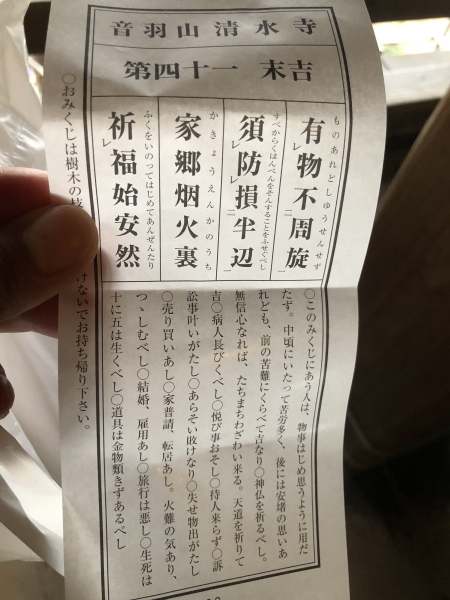 音羽山清水寺
第四十一 末吉
ものあれどしゅうせんせず
有物不周旋
レ 二 一
すべからくはんぺんをそんすることをふせぐべし
須防損半辺
レ レ 二 一
かきょうえんかのうち
家郷烟火裏
ふくをいのってはじめてあんぜんたり
祈福始安然
レ
〇このみくじにあう人は、物事はじめ思うように用だ
たず。中頃にいたって苦労多く、後には安堵の思いあ
れども、前の苦難にくらべて吉なり〇神仏を祈るべし。
無信心なれば、たちまちわざわい来る。天道を祈りて
吉〇病人長びくべし〇悦び事おそし〇待人来らず〇訴
訟事叶いがたし〇あらそい敗けなり〇失せ物出がたし
〇売り買いあし〇家普請、転居あし。火難の気あり、
つゝしむべし〇結婚、雇用あし〇旅行は悪し〇生死は
十に五は生くべし〇道具は金物類きずあるべし
〇おみくじは樹木の
けないでお持ち帰り下さい。